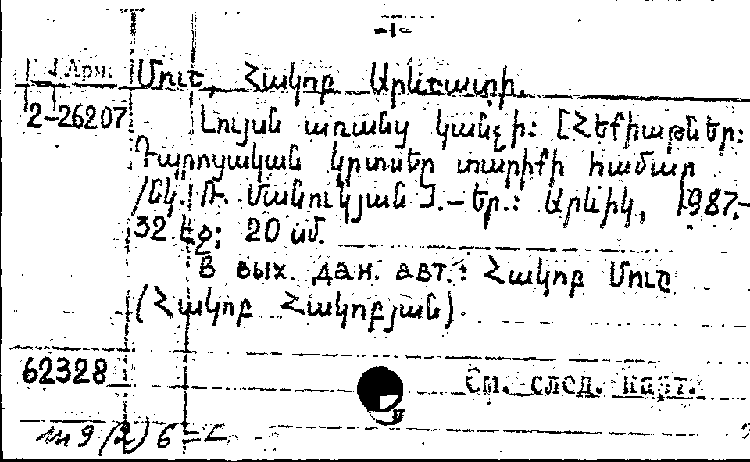 -1-
Арм. Մուշ, Հակոբ Արեշատի.
2-26207 Լույսն առանց կանչի: [Հեքիաթներ:
Դպրոցական կրտսեր տարիքի համար
/նկ. Ռ. Մանուկյան].-Եր.: Արևիկ, 1987.-
32 էջ; 20 սմ.
В вых. дан. авт.: Հակոբ Մուշ
(Հակոբ Հակոբյան).
62328 См. след. карт.